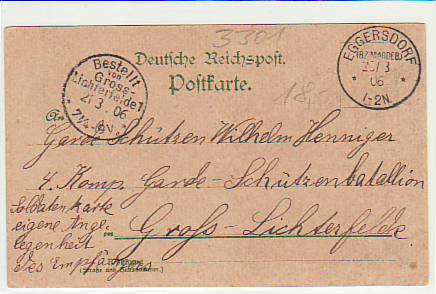 3301
Deutsche Reichspost.
Postkarte.
18,-
Bestellt
von
Gross-
Lichterfelde 1
21/3 06
7¼-9V.
EGGERSDORF
(BZ. MAGDEB.)
20/3
06
1-2N.
An
Garde Schützen Wilhelm Henniger
4. Komp. Garde-Schützenbatallion
Gross-Lichterfelde
Soldaten Karte
eigene Ange
legenheit
des Empfängers
(Straße und Hausnummer)